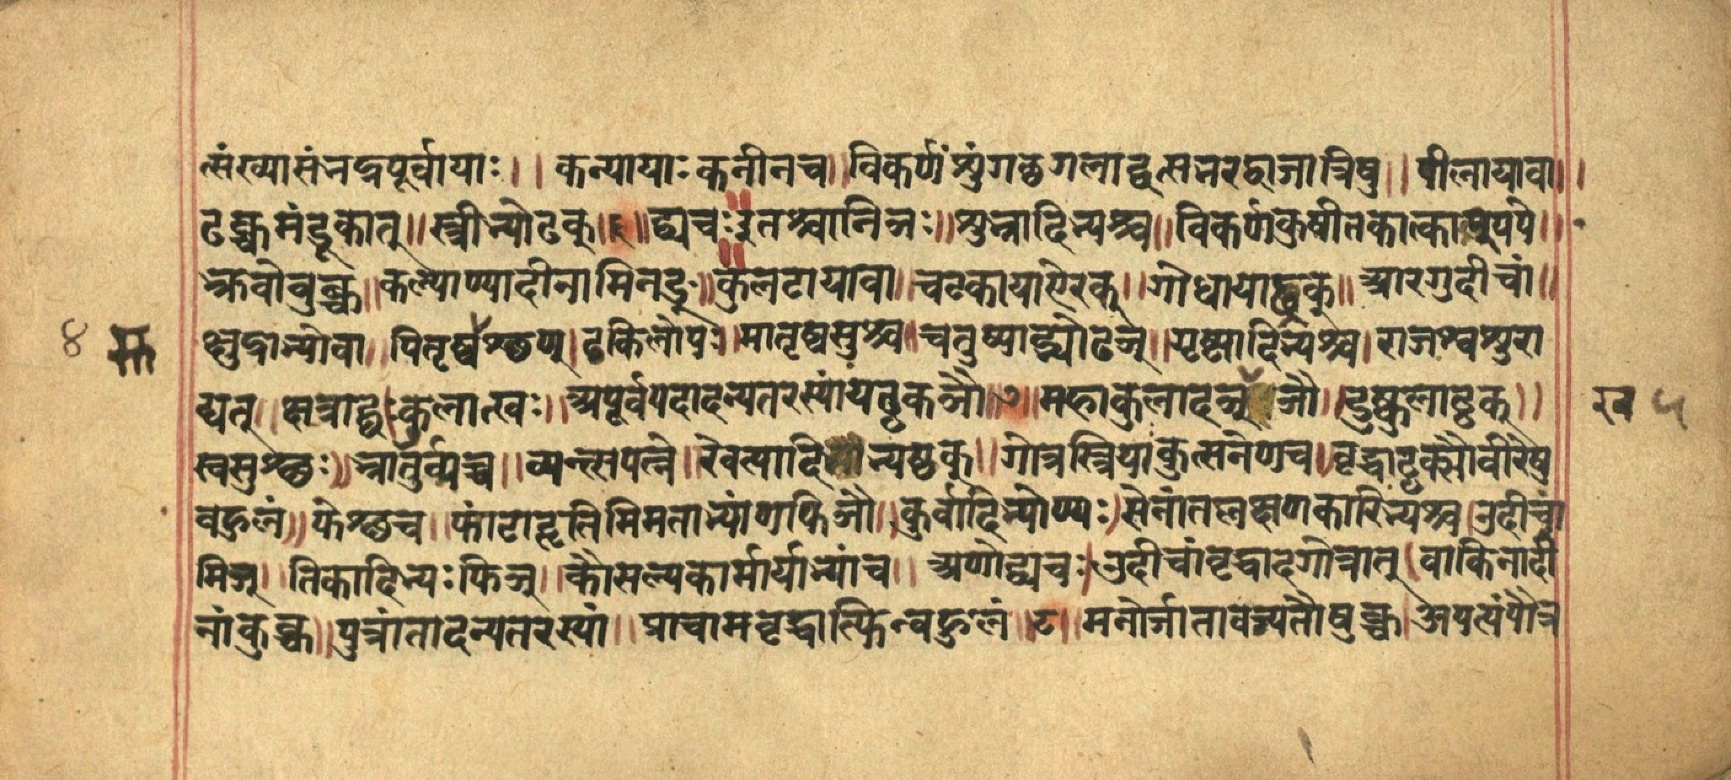 त्संख्यासंभद्रपूर्वायाः॥ कन्यायाः कनीनच॥ विकर्ण शुंगछगलाद्वत्सभरद्वाजात्रिषु॥ पीलायावा॥
ढक्च मंडूकात्॥ स्त्रीभ्योढक्॥६॥ द्व्यचः॥ इतश्चानिञः॥ शुभ्रादिभ्यश्च॥ विकर्णकुषीतकात्काश्यपे॥
भ्रुवोवुक्च॥ कल्याण्यादीनामिनङ्॥ कुलटायावा॥ चटकायाऐरक्॥ गोधायाढ्रक्॥ आरगुदीचां॥
४ क्षुद्राभ्योवा॥ पितृष्वसुश्छण्। ढकिलोपः॥ मातृष्वसुश्च॥ चतुष्पाद्भ्योढञ्॥ गृष्ट्यादिभ्यश्च। राजश्वशुरा
द्यत्॥ क्षत्राद्घः। कुलात्खः॥ अपूर्वपदादन्यतरस्यांयढ्ढकञौ॥७॥ महाकुलादञ्खञौ॥ दुष्कुलाड्ढक्॥ ख ५
स्वसुश्छः॥ भ्रातुर्व्यच्च॥ व्यन्त्सपत्ने॥ रेवत्यादिभ्यष्ठक्॥ गोत्रस्त्रियाःकुत्सनेणच॥ वृद्धाट्ठक्सौवीरेषु
बहुलं॥ फेश्छच॥ फांटाहृतिमिमताभ्यांणफिञौ॥ कुर्वादिभ्योण्यः॥ सेनांतलक्षणकारिभ्यश्च। उदीचां
मिञ्॥ तिकादिभ्यः फिञ्॥ कौसल्यकार्मार्याभ्यांच॥ अणोद्व्यचः। उदीचांवृद्धादगोत्रात्। वाकिनादी
नांकुक्च॥ पुत्रांतादन्यतरस्यां॥ प्राचामवृद्धात्फिन्बहुलं॥८॥ मनोर्जातावञ्यतौषुक्च। अपत्यंपौत्र